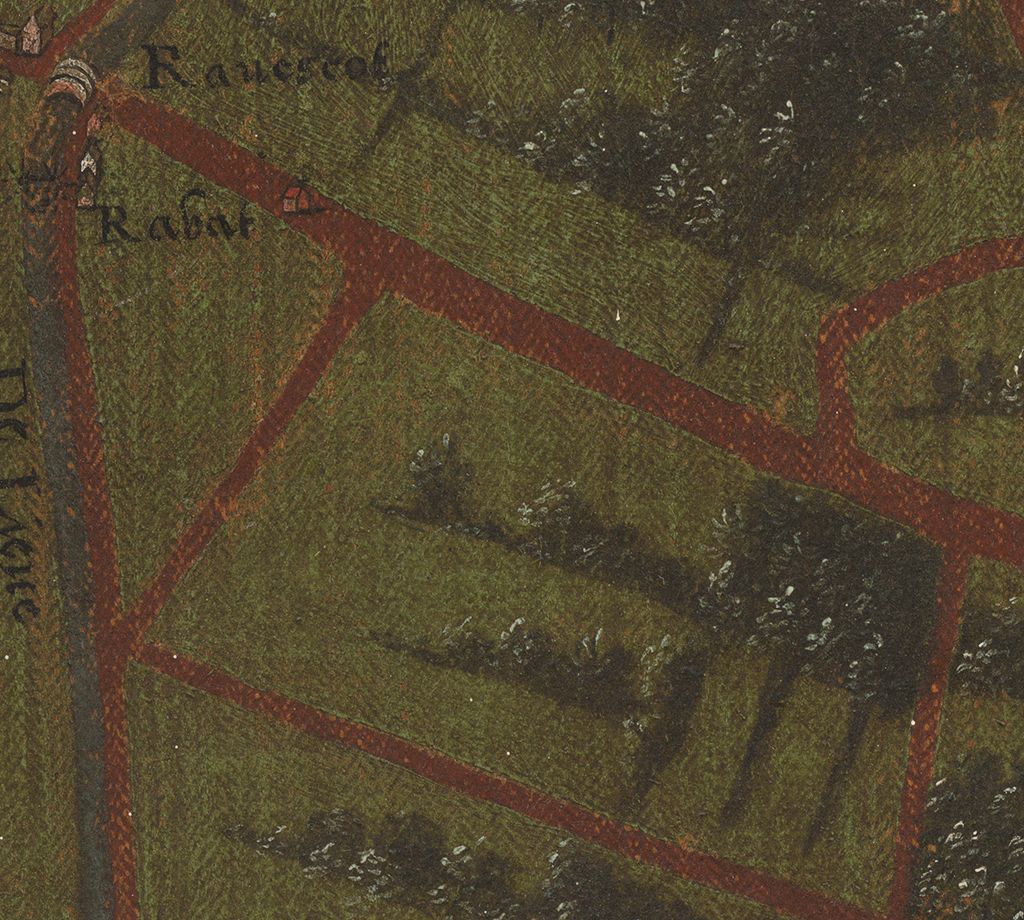 Rauescot
Rabat
De Mere